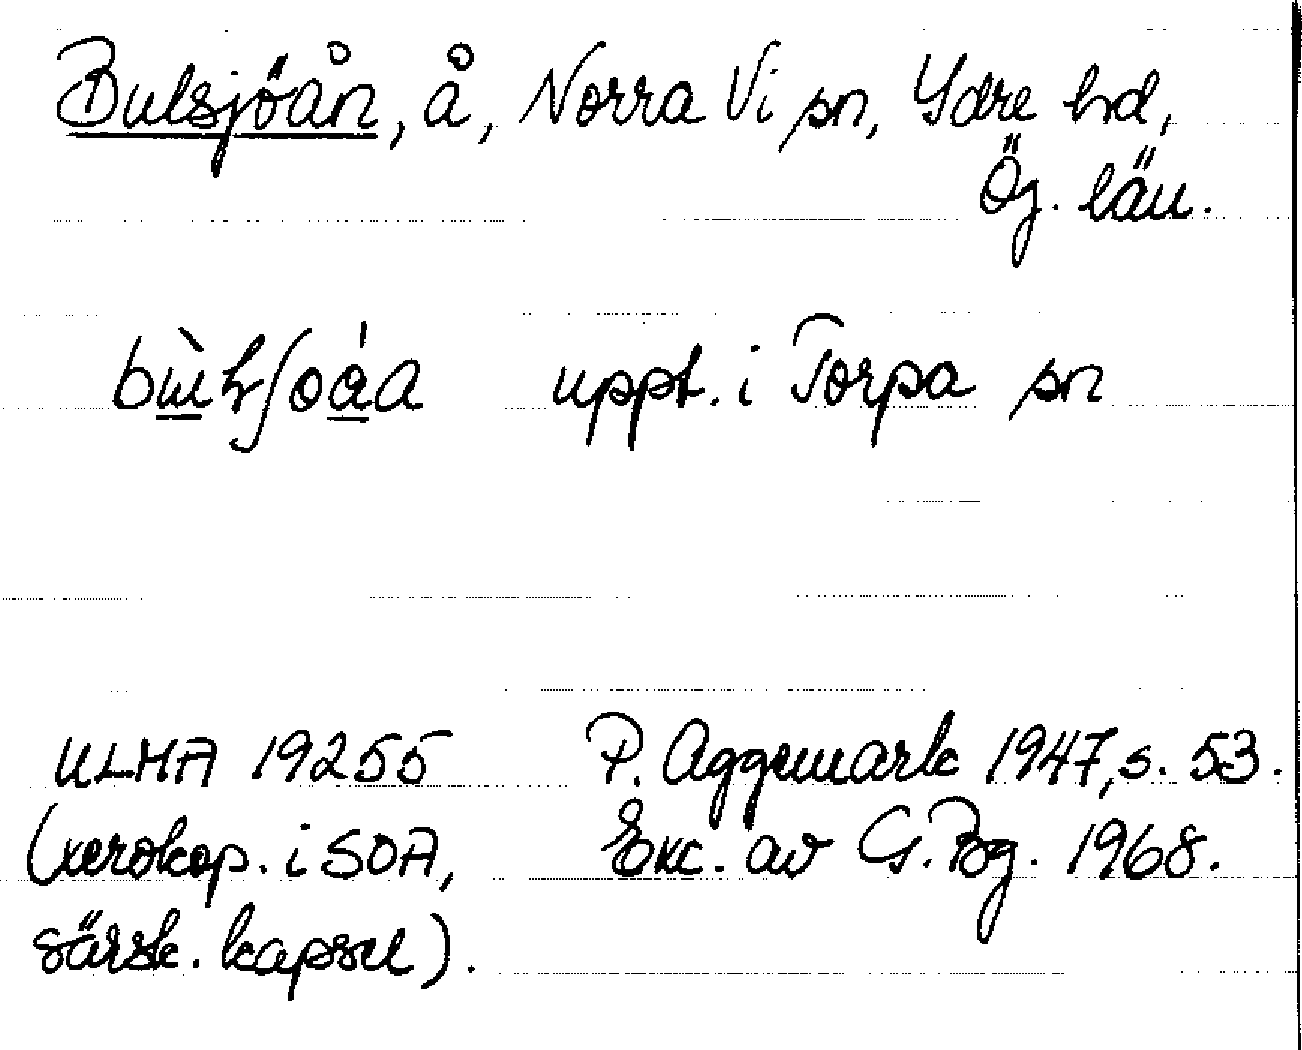 Bulsjöån, å, Norra Vi sn, Ydre hd,
Ög. län.
uppt. i Torpa sn
ULMA 19255 P. Aggemark 1947, s. 53.
(xerokop. i SOA, Exc. av G. Bg. 1968.
särsk. kapsel).